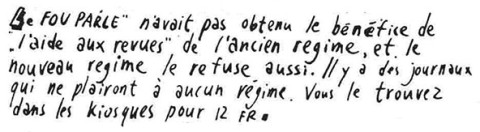 Le FOU PARLE" n'avait pas obtenu le bénéfice de
„l'aide aux revues" de l'ancien regime, et le
nouveau regime le refuse aussi. Il y a des journaux
qui ne plairont à aucun régime. Vous le trouvez
dans les kiosques pour 12 FR.